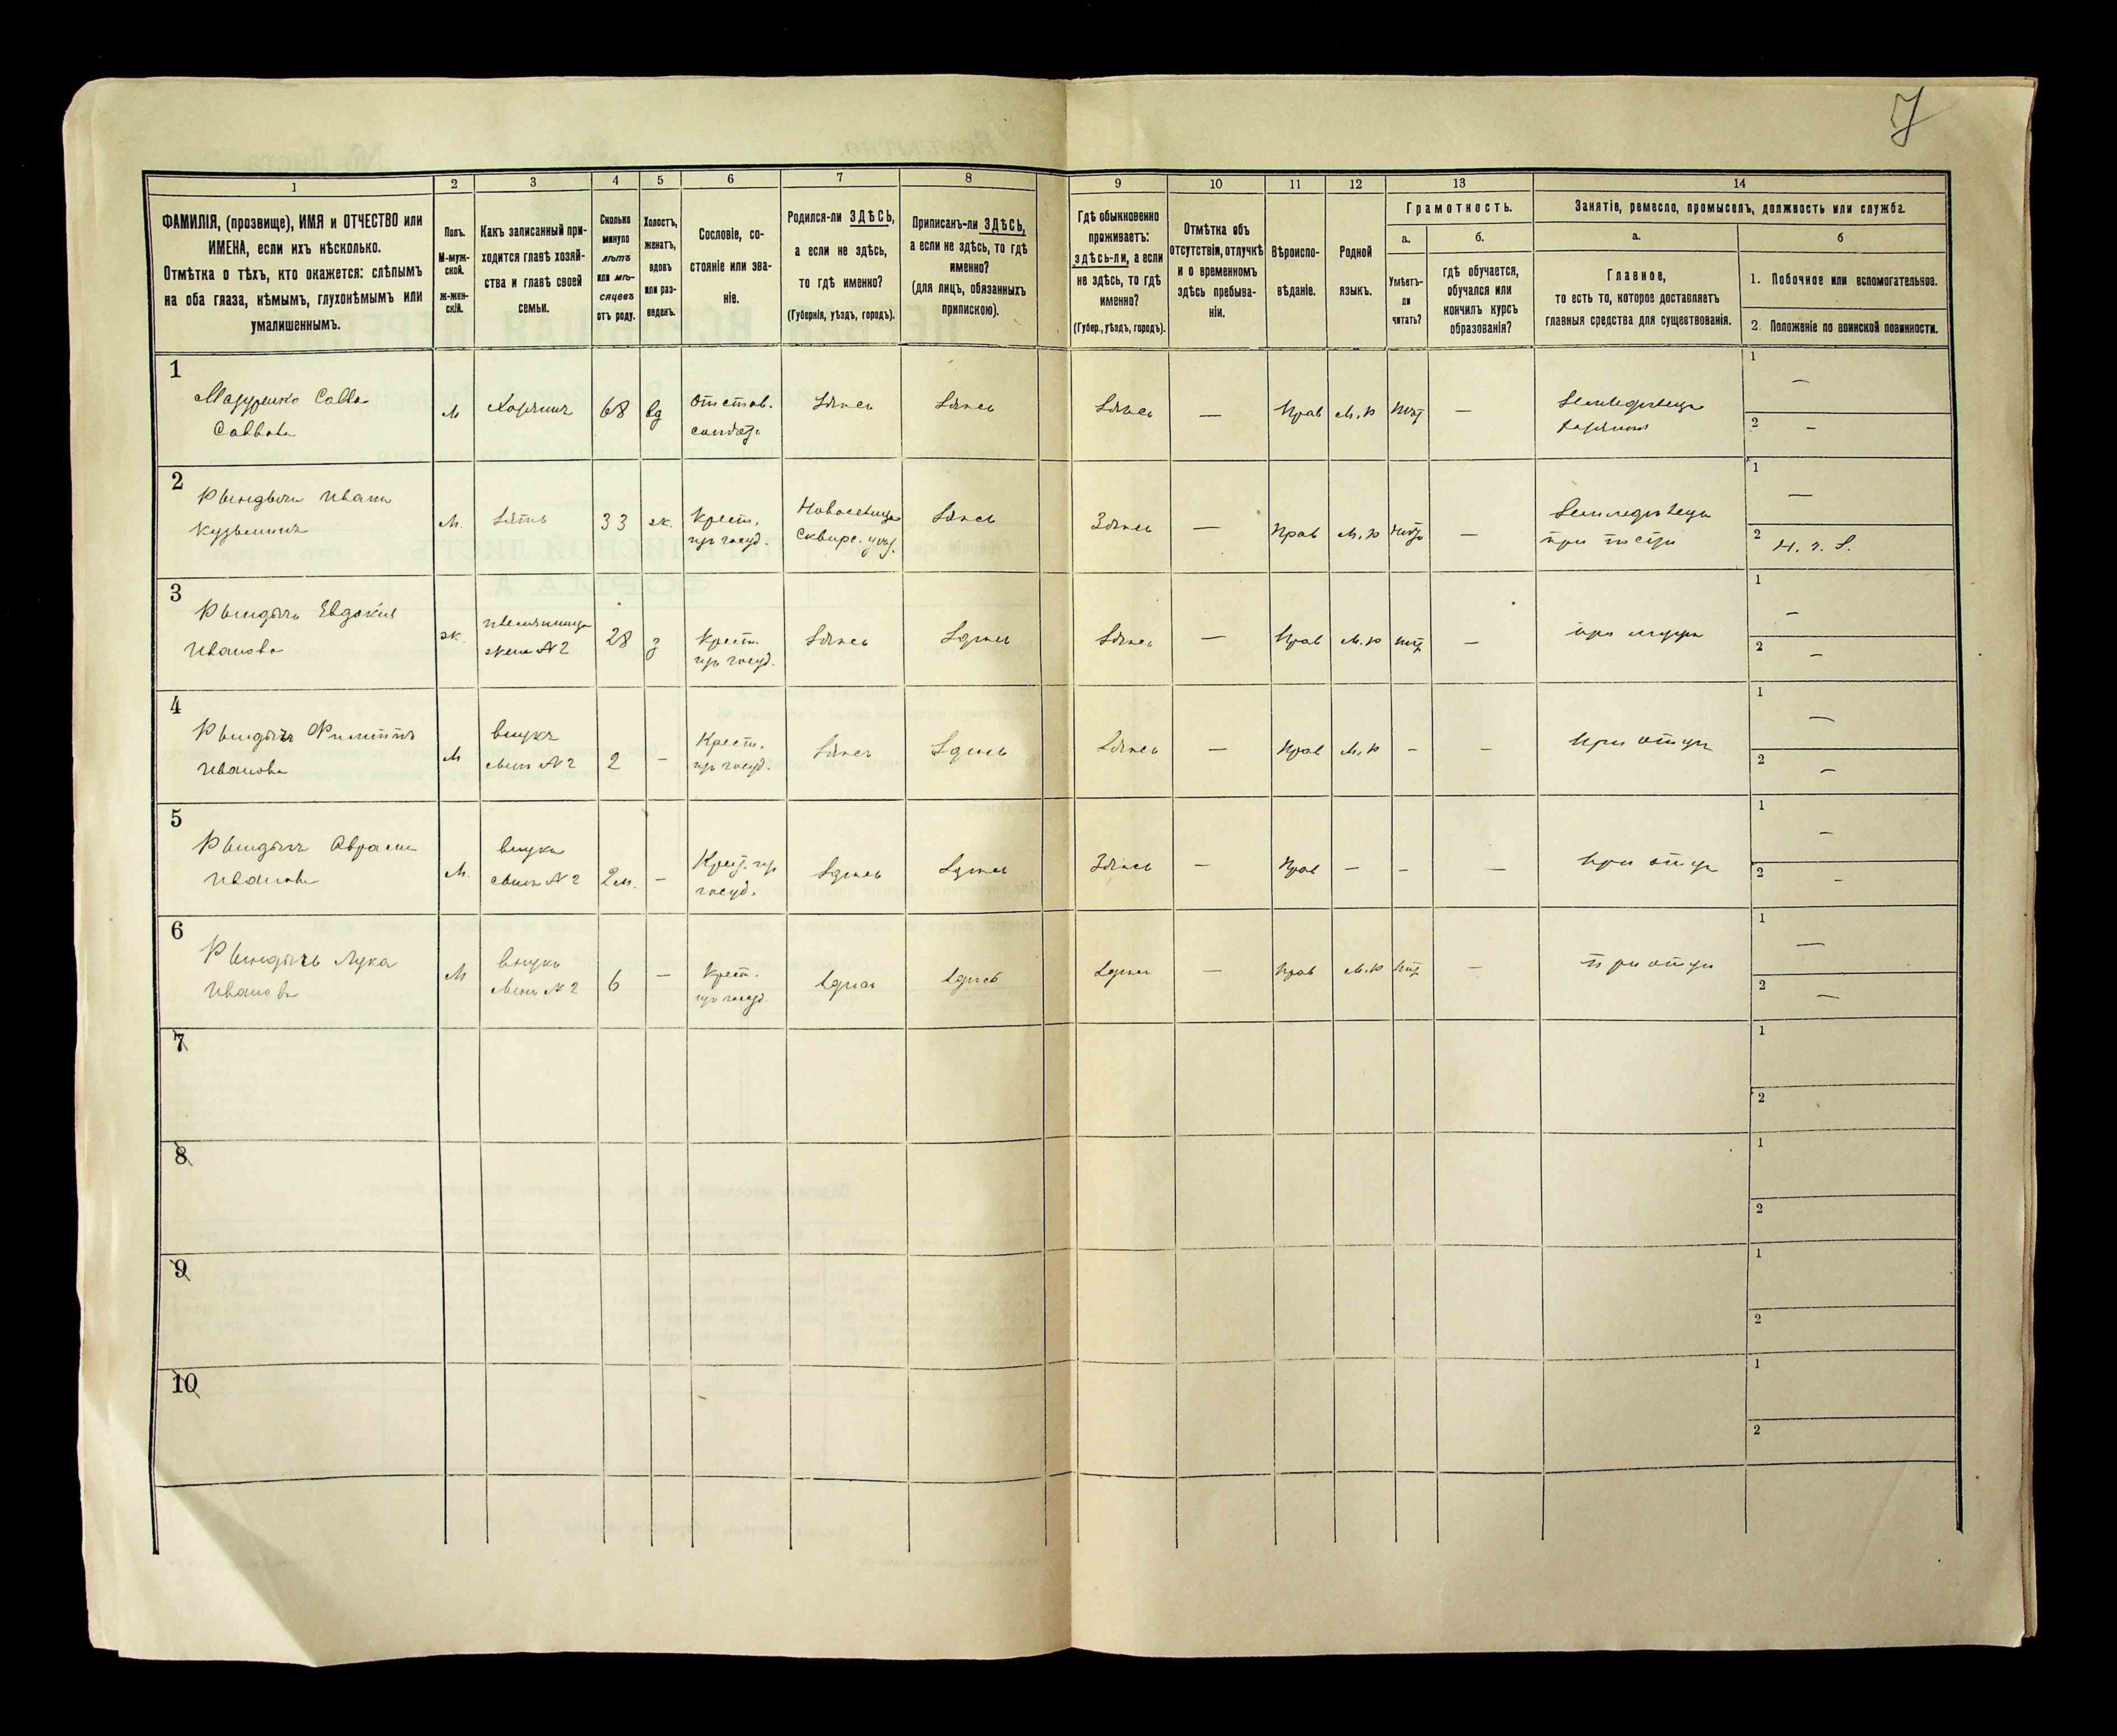 7
1
2
3
4
5
6
7
8
9
10
11
12
13
14
ФАМИЛІЯ, (прозвище), ИМЯ и ОТЧЕСТВО или
ИМЕНА, если ихъ нѣсколько.
Отмѣтка о тѣхъ, кто окажется: слѣпымъ
на оба глаза, нѣмымъ, глухонѣмымъ или
умалишеннымъ.
Полъ.
М-муж-
ской.
Ж-жен-
скій.
Какъ записанный при-
ходится главѣ хозяй-
ства и главѣ своей
семьи.
Сколько
минуло
лѣтъ
или мѣ-
сяцевъ
отъ роду.
Холостъ,
женатъ,
вдовъ
или раз-
веденъ.
Сословіе, со-
стояніе или зва-
ніе.
Родился-ли ЗДѢСЬ,
а если не здѣсь,
то гдѣ именно?
(Губернія, уѣздъ, городъ).
Приписанъ-ли ЗДѢСЬ,
а если не здѣсь, то гдѣ
именно?
(для лицъ, обязанныхъ
припискою).
Гдѣ обыкновенно
проживаетъ:
здѣсь-ли, а если
не здѣсь, то гдѣ
именно?
(Губер., уѣздъ, городъ).
Отмѣтка объ
отсутствіи, отлучкѣ
и о временномъ
здѣсь пребыва-
ніи.
Вѣроиспо-
вѣданіе.
Родной
языкъ.
Грамотность.
а.
Умѣетъ-
ли
читать?
б.
гдѣ обучается,
обучался или
кончилъ курсъ
образованія?
Занятіе, ремесло, промыселъ, должность или служба.
а.
Главное,
то есть то, которое доставляетъ
главныя средства для существованія.
б
1. Побочное или вспомогательное.
2. Положеніе по воинской повинности.
1
Савва
М
Хозяинъ
68
вд
отстав.
солдатъ
Здѣсь
Здѣсь
Здѣсь
—
Прав
М.р
нѣт
—
Земледѣлецъ
хозяинъ
1
—
2
—
2
Иванъ
Кузьминъ
М.
Зять
33
ж.
Крест.
из госуд.
Сквирс. уѣзд.
Здѣсь
Здѣсь
—
Прав
М.р
нѣт
—
Земледѣлецъ
при тестѣ
1
—
2
3
Евдокія
Иванова
ж.
жена № 2
28
з
Крест.
из госуд.
Здѣсь
Здѣсь
Здѣсь
—
Прав
М.р
нѣт
—
при мужѣ
1
—
2
—
4
Филиппъ
Ивановъ
М
внукъ
сынъ № 2
2
-
Крест.
из госуд.
Здѣсь
Здѣсь
Здѣсь
—
Прав
М.р
-
-
при отцѣ
1
—
2
—
5
Ивановъ
М.
внукъ
сынъ № 2
2 м.
-
Крест. из
госуд.
Здѣсь
Здѣсь
Здѣсь
—
Прав
—
-
—
при отцѣ
1
—
2
-
6
Лука
Ивановъ
М
внукъ
сынъ № 2
6
—
Крест.
из госуд.
Здѣсь
Здѣсь
Здѣсь
—
Прав
М.р
нѣт
-
при отцѣ
1
—
2
—
7
1
2
8
1
2
9
1
2
10
1
2